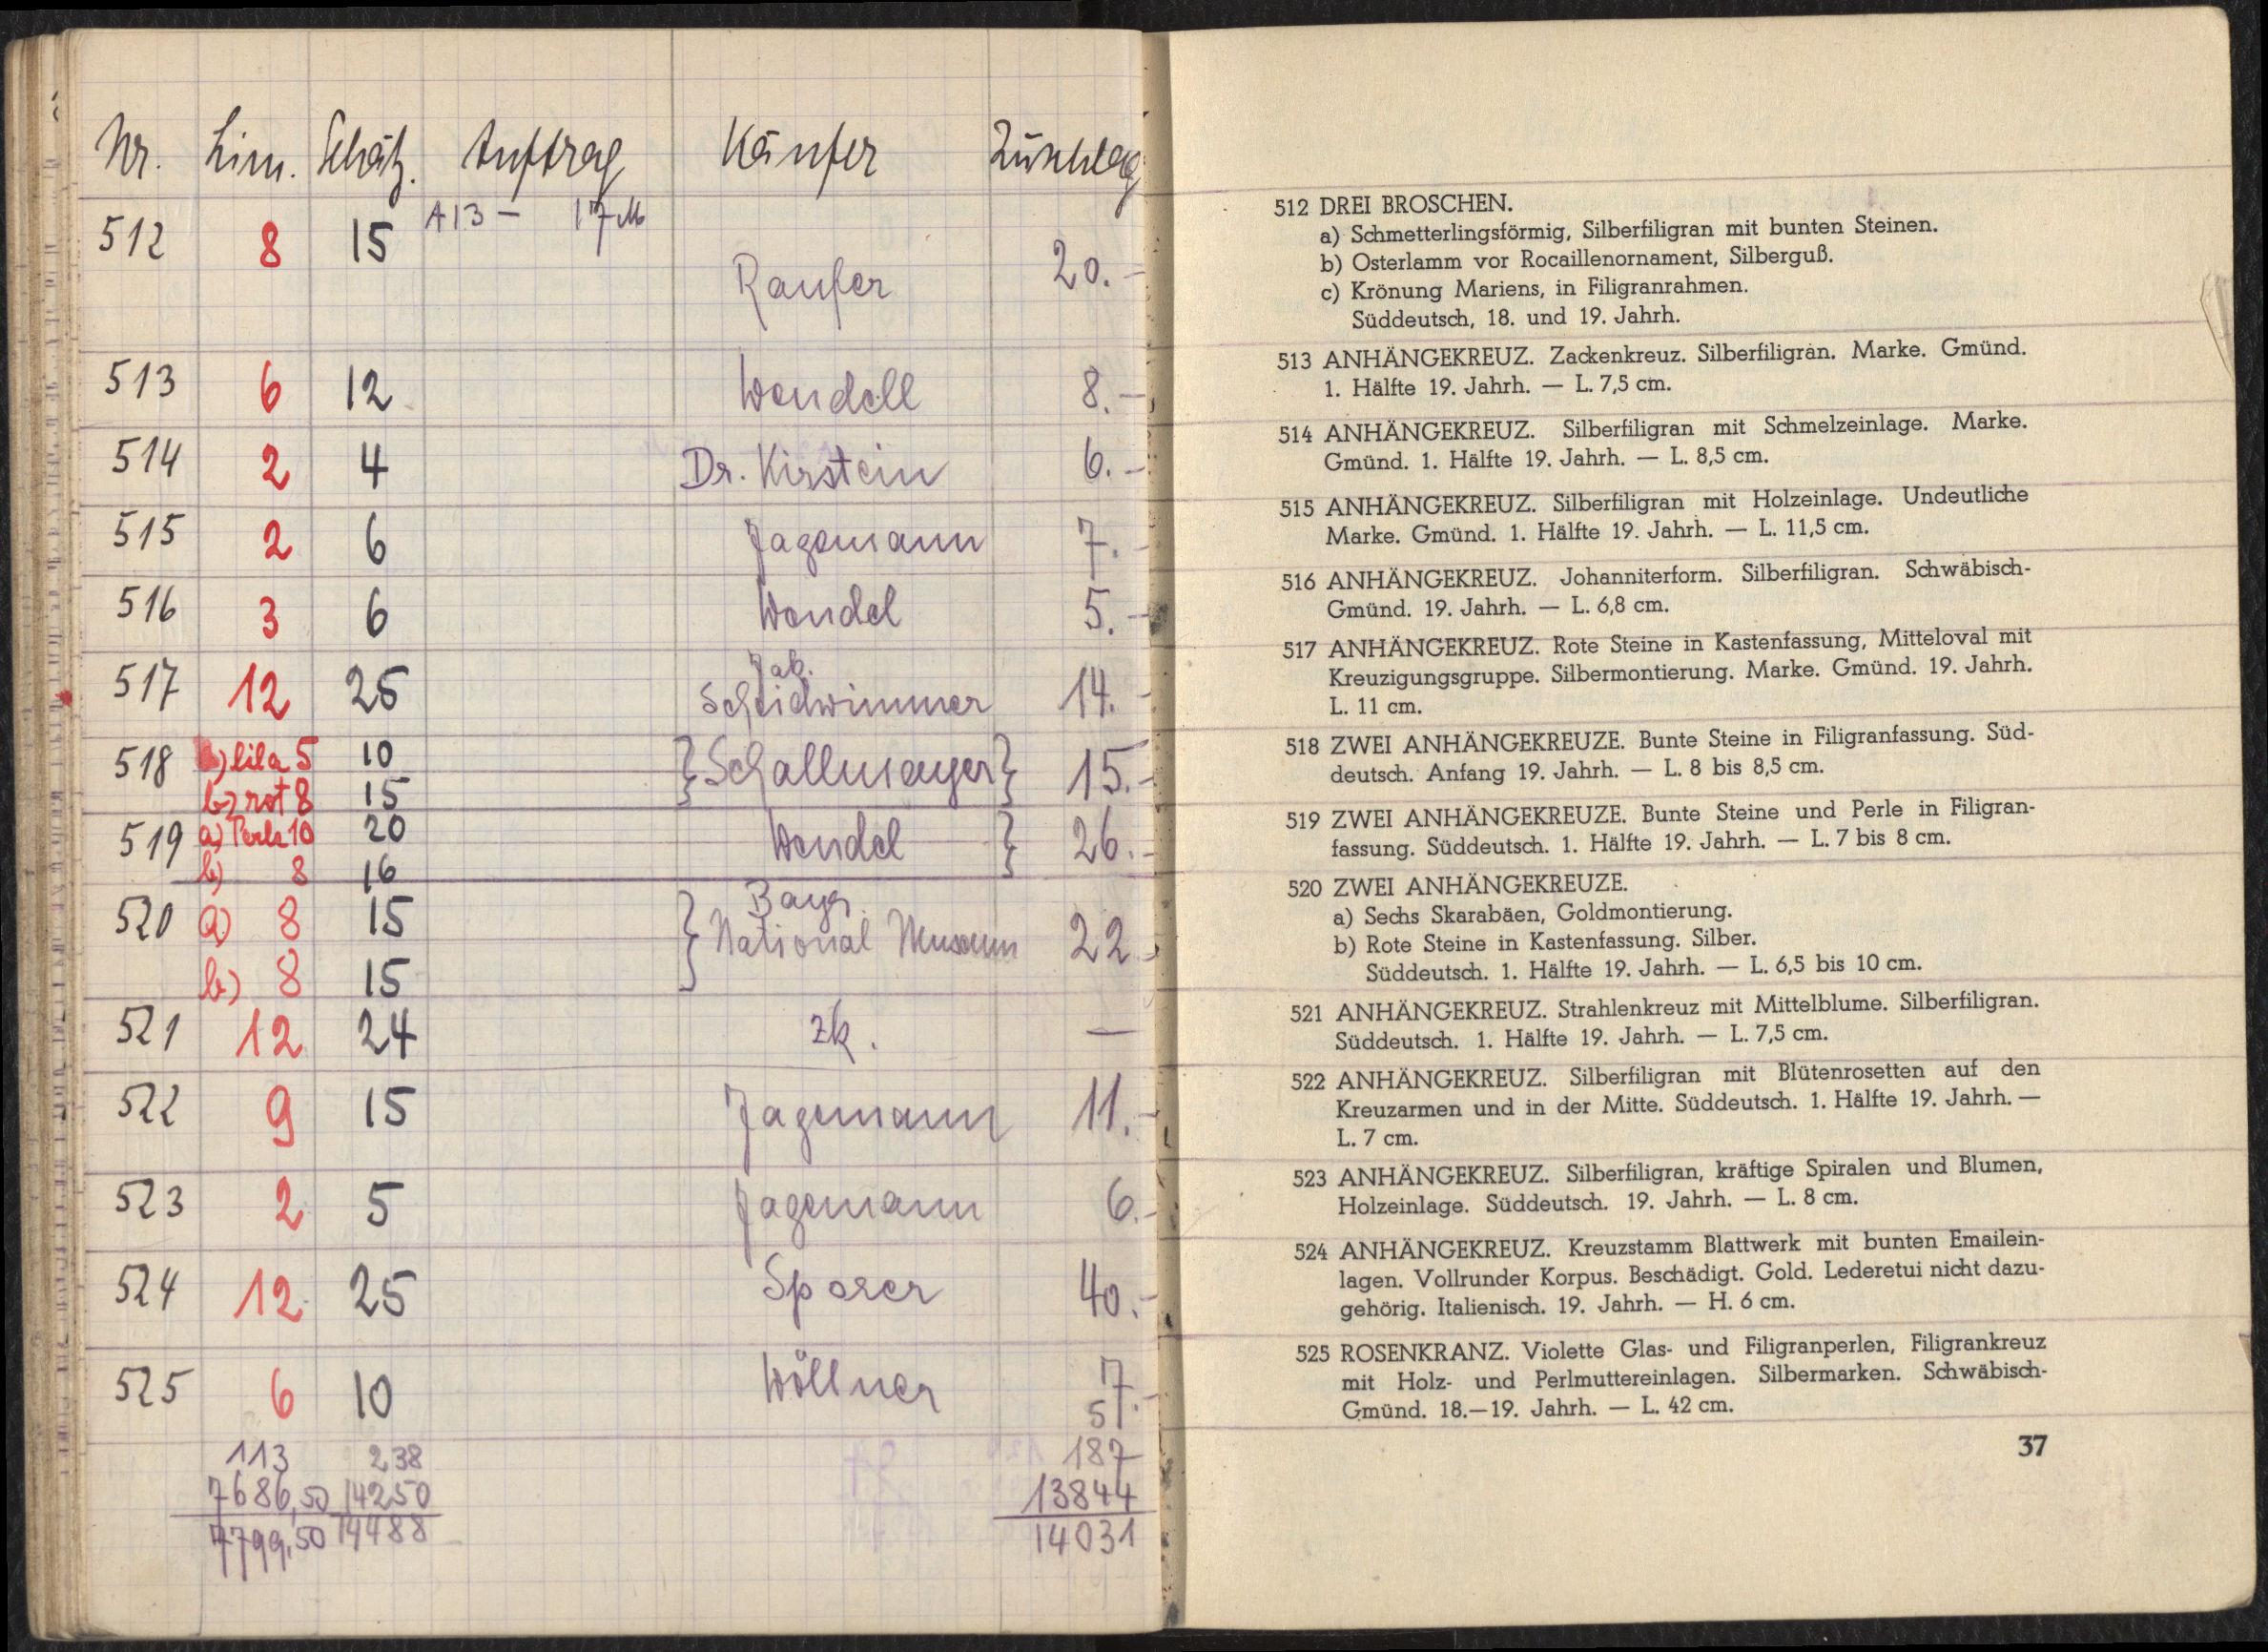 Nr. Lim. Schätz. Auftrag Käufer Zuschlag
512 8 15 A13 – 17 M Raufer 20.-
513 6 12 Wendell 8.-
514 2 4 Dr. Kirstein 6.-
515 2 6 Jagemann 7.-
516 3 6 Wendel 5.-
517 12 25 Jak. Scheidwimmer 14.-
518 a) lila 5 10 Schallmayer 15.-
b) rot 8 15
519 a) Perle 10 20 Wendel 26.-
b) 8 16
520 a) 8 15 Bayr. National Museum 22.-
b) 8 15
521 12 24 zk. —
522 9 15 Jagemann 11.-
523 2 5 Jagemann 6.-
524 12 25 Sporer 40.-
525 6 10 Wöllner 7.-
57
113 238 187
7686,50 14250 13844
7799,50 14488 14031
512 DREI BROSCHEN.
a) Schmetterlingsförmig, Silberfiligran mit bunten Steinen.
b) Osterlamm vor Rocaillenornament, Silberguß.
c) Krönung Mariens, in Filigranrahmen.
Süddeutsch, 18. und 19. Jahrh.
513 ANHÄNGEKREUZ. Zackenkreuz. Silberfiligran. Marke. Gmünd.
1. Hälfte 19. Jahrh. — L. 7,5 cm.
514 ANHÄNGEKREUZ. Silberfiligran mit Schmelzeinlage. Marke.
Gmünd. 1. Hälfte 19. Jahrh. — L. 8,5 cm.
515 ANHÄNGEKREUZ. Silberfiligran mit Holzeinlage. Undeutliche
Marke. Gmünd. 1. Hälfte 19. Jahrh. — L. 11,5 cm.
516 ANHÄNGEKREUZ. Johanniterform. Silberfiligran. Schwäbisch-
Gmünd. 19. Jahrh. — L. 6,8 cm.
517 ANHÄNGEKREUZ. Rote Steine in Kastenfassung, Mitteloval mit
Kreuzigungsgruppe. Silbermontierung. Marke. Gmünd. 19. Jahrh.
L. 11 cm.
518 ZWEI ANHÄNGEKREUZE. Bunte Steine in Filigranfassung. Süd-
deutsch. Anfang 19. Jahrh. — L. 8 bis 8,5 cm.
519 ZWEI ANHÄNGEKREUZE. Bunte Steine und Perle in Filigran-
fassung. Süddeutsch. 1. Hälfte 19. Jahrh. — L. 7 bis 8 cm.
520 ZWEI ANHÄNGEKREUZE.
a) Sechs Skarabäen, Goldmontierung.
b) Rote Steine in Kastenfassung. Silber.
Süddeutsch. 1. Hälfte 19. Jahrh. — L. 6,5 bis 10 cm.
521 ANHÄNGEKREUZ. Strahlenkreuz mit Mittelblume. Silberfiligran.
Süddeutsch. 1. Hälfte 19. Jahrh. — L. 7,5 cm.
522 ANHÄNGEKREUZ. Silberfiligran mit Blütenrosetten auf den
Kreuzarmen und in der Mitte. Süddeutsch. 1. Hälfte 19. Jahrh. —
L. 7 cm.
523 ANHÄNGEKREUZ. Silberfiligran, kräftige Spiralen und Blumen,
Holzeinlage. Süddeutsch. 19. Jahrh. — L. 8 cm.
524 ANHÄNGEKREUZ. Kreuzstamm Blattwerk mit bunten Emailein-
lagen. Vollrunder Korpus. Beschädigt. Gold. Lederetui nicht dazu-
gehörig. Italienisch. 19. Jahrh. — H. 6 cm.
525 ROSENKRANZ. Violette Glas- und Filigranperlen, Filigrankreuz
mit Holz- und Perlmuttereinlagen. Silbermarken. Schwäbisch-
Gmünd. 18.—19. Jahrh. — L. 42 cm.
37